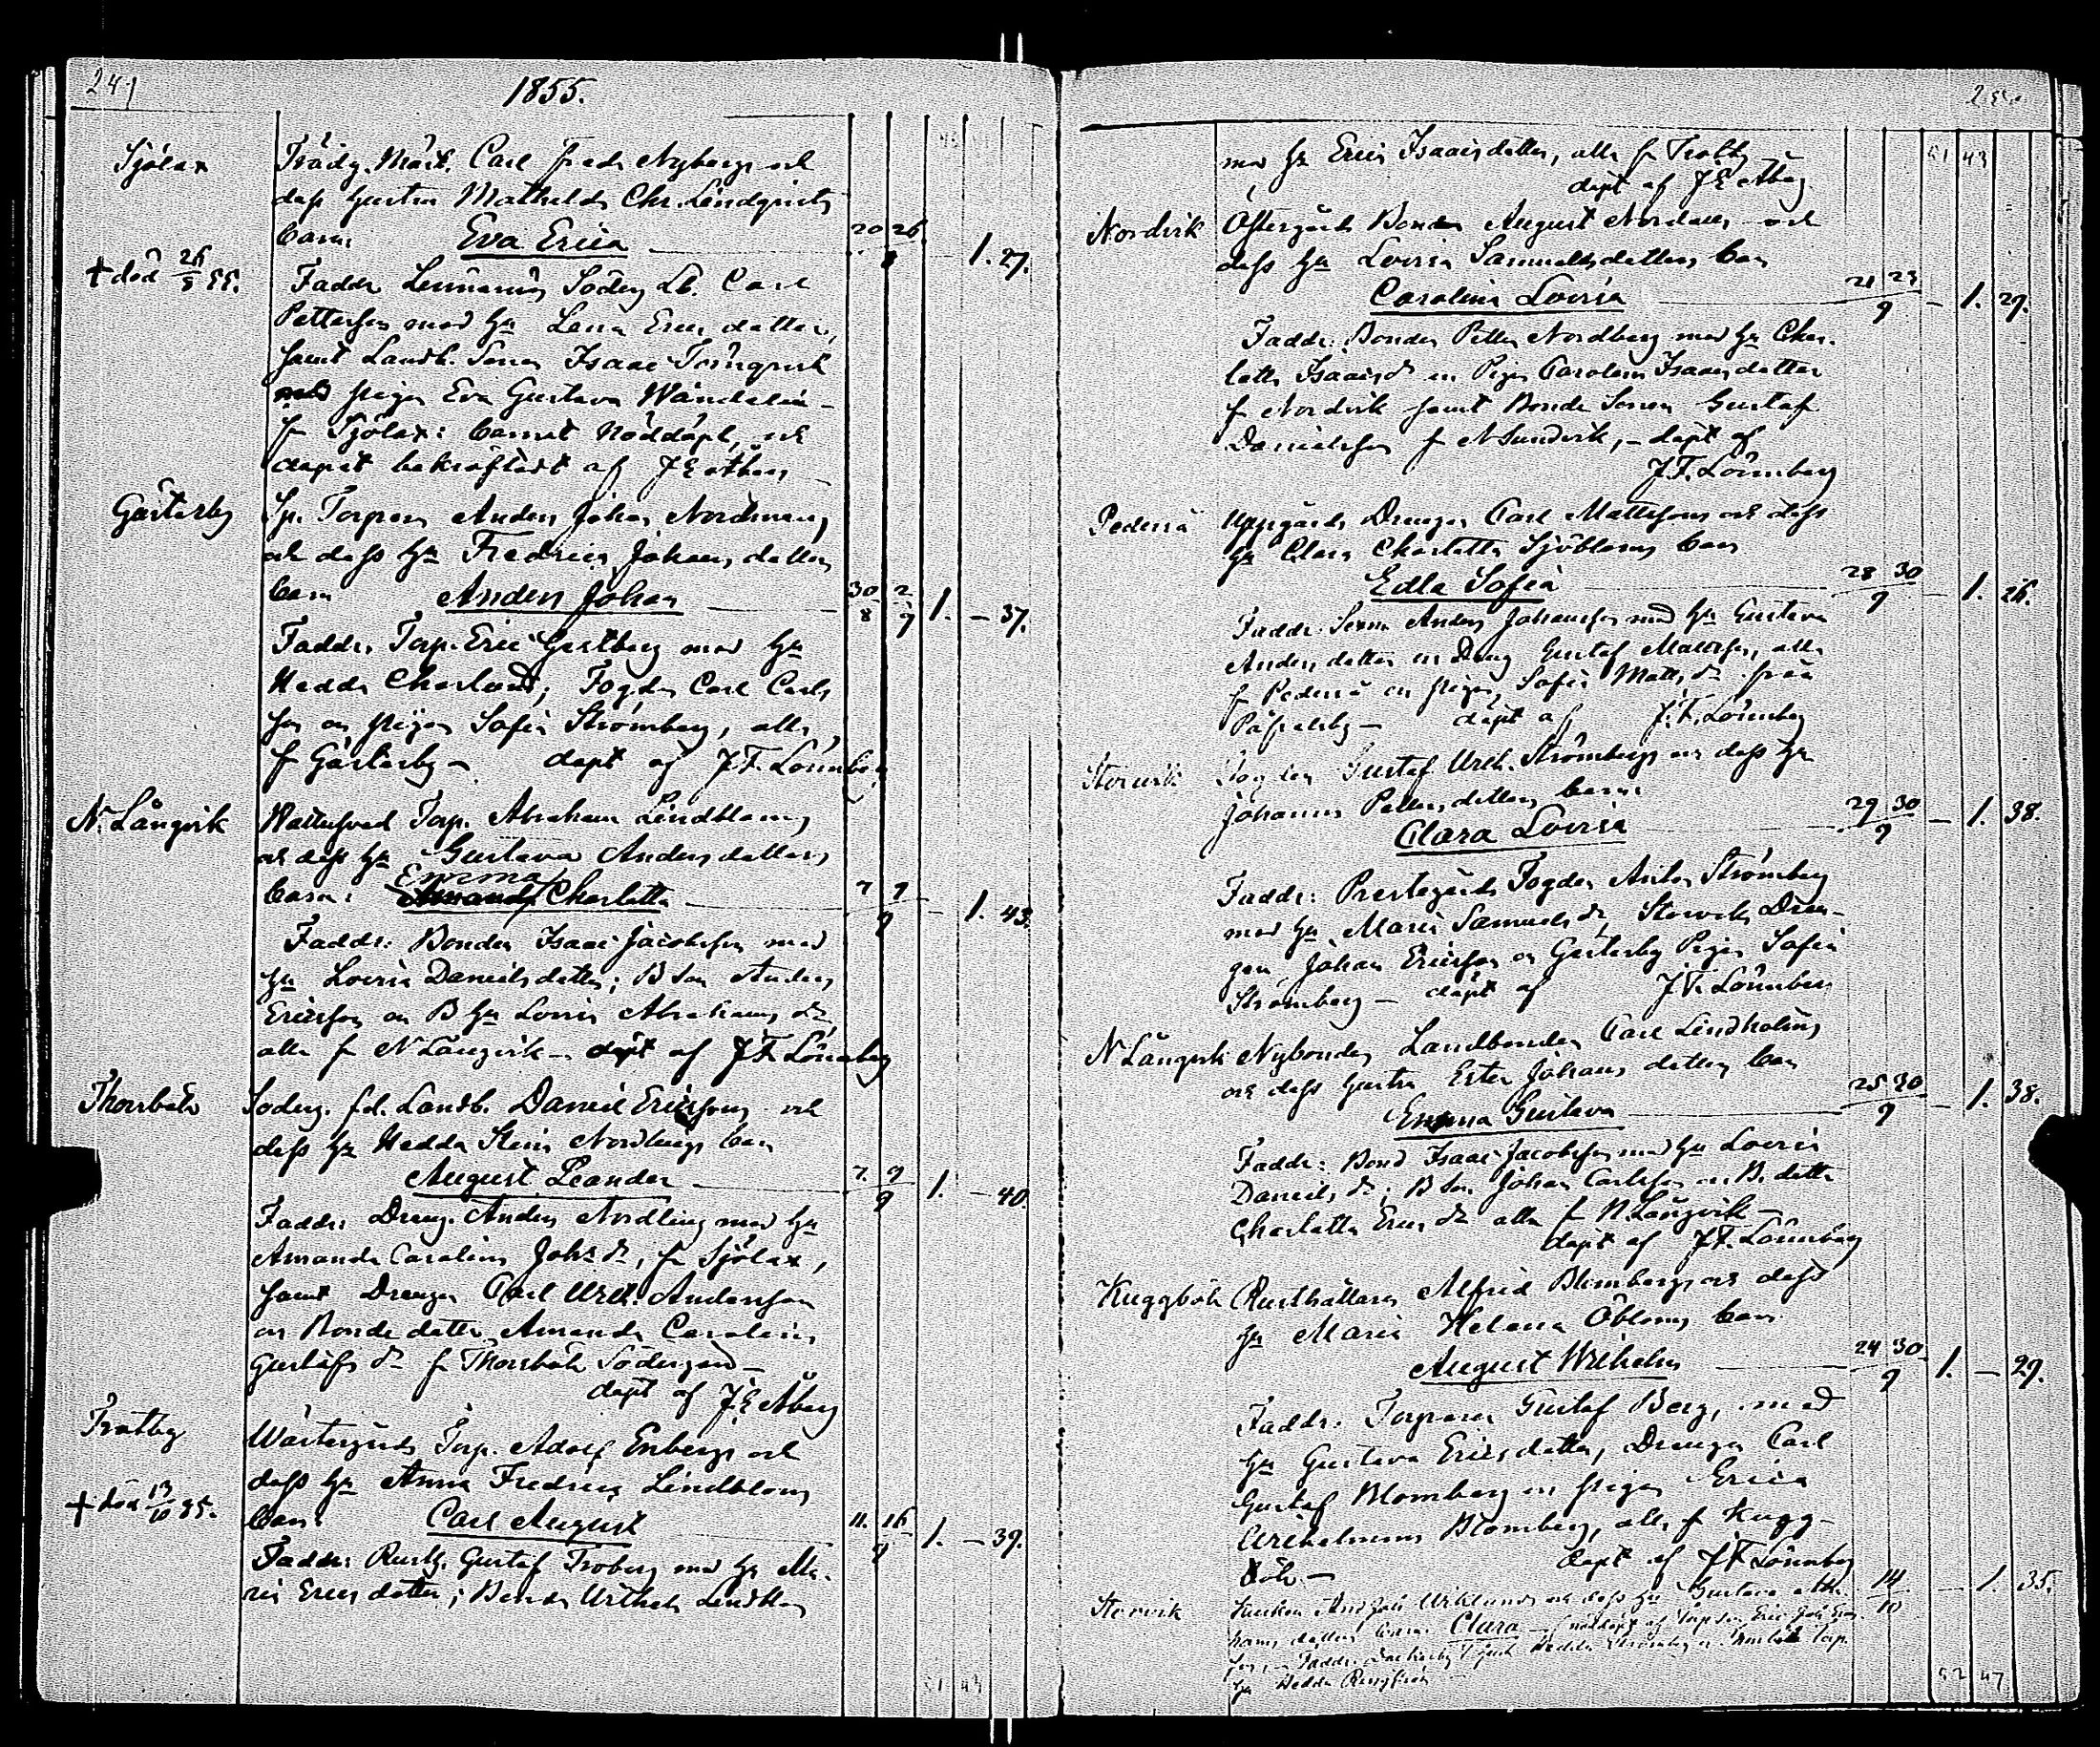 241
1855.
Sjölax
Trädg. Mäst. Carl Fredr Nybergs och
dess Hustru Mathilda Chr. Lindqvists
barn: Eva Erica 20 26 8 1. 27.
† död 26/8 55.
Faddr Lennarius Söderg Lb. Carl
Petterson med Hu Lena Ericsdotter,
samt Landb. Sonen Isaac Törnqvist
med pigan Eva Gustava Wändelin
fr Sjölax: barnet nöddöpt, och
döpet bekräftadt af J E Åberg
Gästerby
Sp. Torparen Anders Johan Nordmans
och dess Hu Fredrica Johansdotters
barn Anders Johan 30 2 8 9 1. – 37.
Faddr. Torp. Eric Gestberg med Hu
Hedda Charlotta; Fogden Carl Carls
son och pigan Sofia Strömberg, alla
fr Gästerby – döpt af J.F. Lönnberg
N. Långvik
Torp. Abraham Lindbloms
och dess Hu Gustava Andersdotters
Emma
barn: Amanda Charlotta 7 9 9 – 1. 43.
Faddr: Bonden Isaac Jacobsson med
Hu Lovisa Danielsdotter; B Son Anders
Ericsson och B Hu Lovisa Abrahams dr
alla fr N Långvik – döpt af J F Lönnberg
Thorsböle
Söderg. fd. Landb. Daniel Ericssons och
dess Hu Hedda Stina Nordbergs barn
August Leander 7. 9 9 1. – 40.
Faddr: Dreng. Anders Nordling med Hu
Amanda Carolina Johs dr, fr Sjölax,
samt Drengen Carl Wilh. Andersson
och Bonde dottr Amanda Carolina
Gustafs dr fr Thorsböle Södergård –
döpt af J E Åberg
Trotby
Westergårds Torp. Adolf Enbergs och
dess Hu Anna Fredrica Lindbloms
† död 13/10 55.
barn: Carl August 11. 16 9 1. – 39.
Faddr: Rusth. Gustaf Troberg med Hu Ma-
ria Ericsdotter; Bonden Wilhelm Lindblom
med Hu Erica Isaacsdotter, alla fr Trotby
döpt af J E Åberg
51 43
Nordvik
Östergårds Bonden August Nordmans och
dess Hu Lovisa Samuelsdotters barn
Carolina Lovisa 21 23 9 – 1. 29.
Faddr: Bonden Petter Nordberg med Hu Char-
lotta Isaacs dr och Pigan Carolina Isaacsdotter
fr Nordvik samt Bonde Sonen Gustaf
Danielsson fr N Sundvik, – döpt af
J.F. Lönnberg
Pederså
Uppgårds Drengen Carl Mattssons och dess
Hu Clara Charlotta Sjöbloms barn
Edla Sofia 28 30 9 – 1. 26.
Faddr: Anders Johansson med Hu Gustava
Andersdotter och Dreng Gustaf Mattsson, alla
fr Pederså och pigan Sofia Matts dr från
Påfvalsby – döpt af J.F. Lönnberg
Storvik
Fogden Gustaf Wilh. Strömbergs och dess Hu
Johanna Pettersdotters barn:
Clara Lovisa 29 30 9 – 1. 38.
Faddr: Prestegårds Fogden Anton Strömberg
med Hu Maria Samuels dr, Storviks Dren-
gen Johan Ericsson och Gesterby Pigan Sofia
Strömberg – döpt af J F. Lönnberg
N Långvik
Nybondes Landbonden Carl Lindholms
och dess Hustru Ester Johansdotters barn
Emma Gustava 25 30 9 – 1. 38.
Faddr: Bond Isaac Jacobsson med Hu Lovisa
Daniels dr; B Son Johan Carlsson och B. dottr
Charlotta Erics dr alla fr N. Långvik –
döpt af J F. Lönnberg
Kuggböle
Rusthållaren Alfred Blombergs och dess
Hu Maria Helena Öbloms barn
August Wilhelm 24 30 9 1. – 29.
Faddr: Torparen Gustaf Berg, med
Hu Gustava Ericsdotter, Drengen Carl
Gustaf Blomberg och pigan Erica
Wilhelmina Blomberg, alla fr Kugg-
böle – döpt af J F Lönnberg
Storvik
Wiklunds och dess Hu Gustava Abra- 14 10 – 1. 35.
hams dotters barn: Clara – nöddöpt af Eric Joh Erics
son, – Faddr: Hedda Strömberg Torp.
Hu Hedda
51 43
52 47